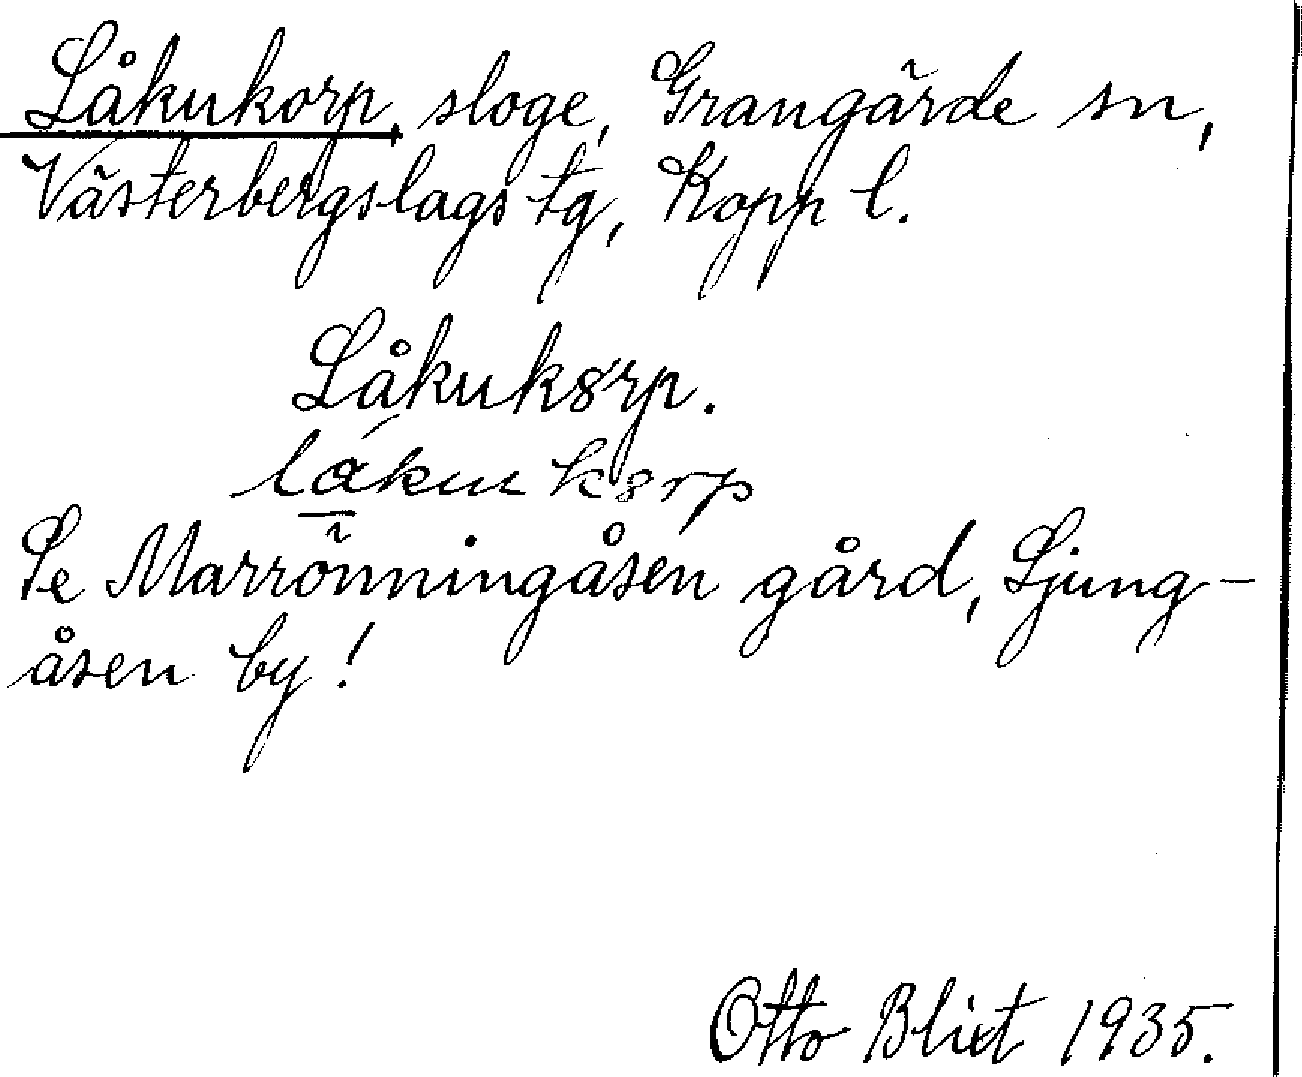 Låkukorp, sloge, Grangärde sn,
Västerbergslags tg, Kopp l.
Låkuk8rp.
lákuk8rp
Se Marrönningåsen gård, Ljung-
åsen by!
Otto Blixt 1935.